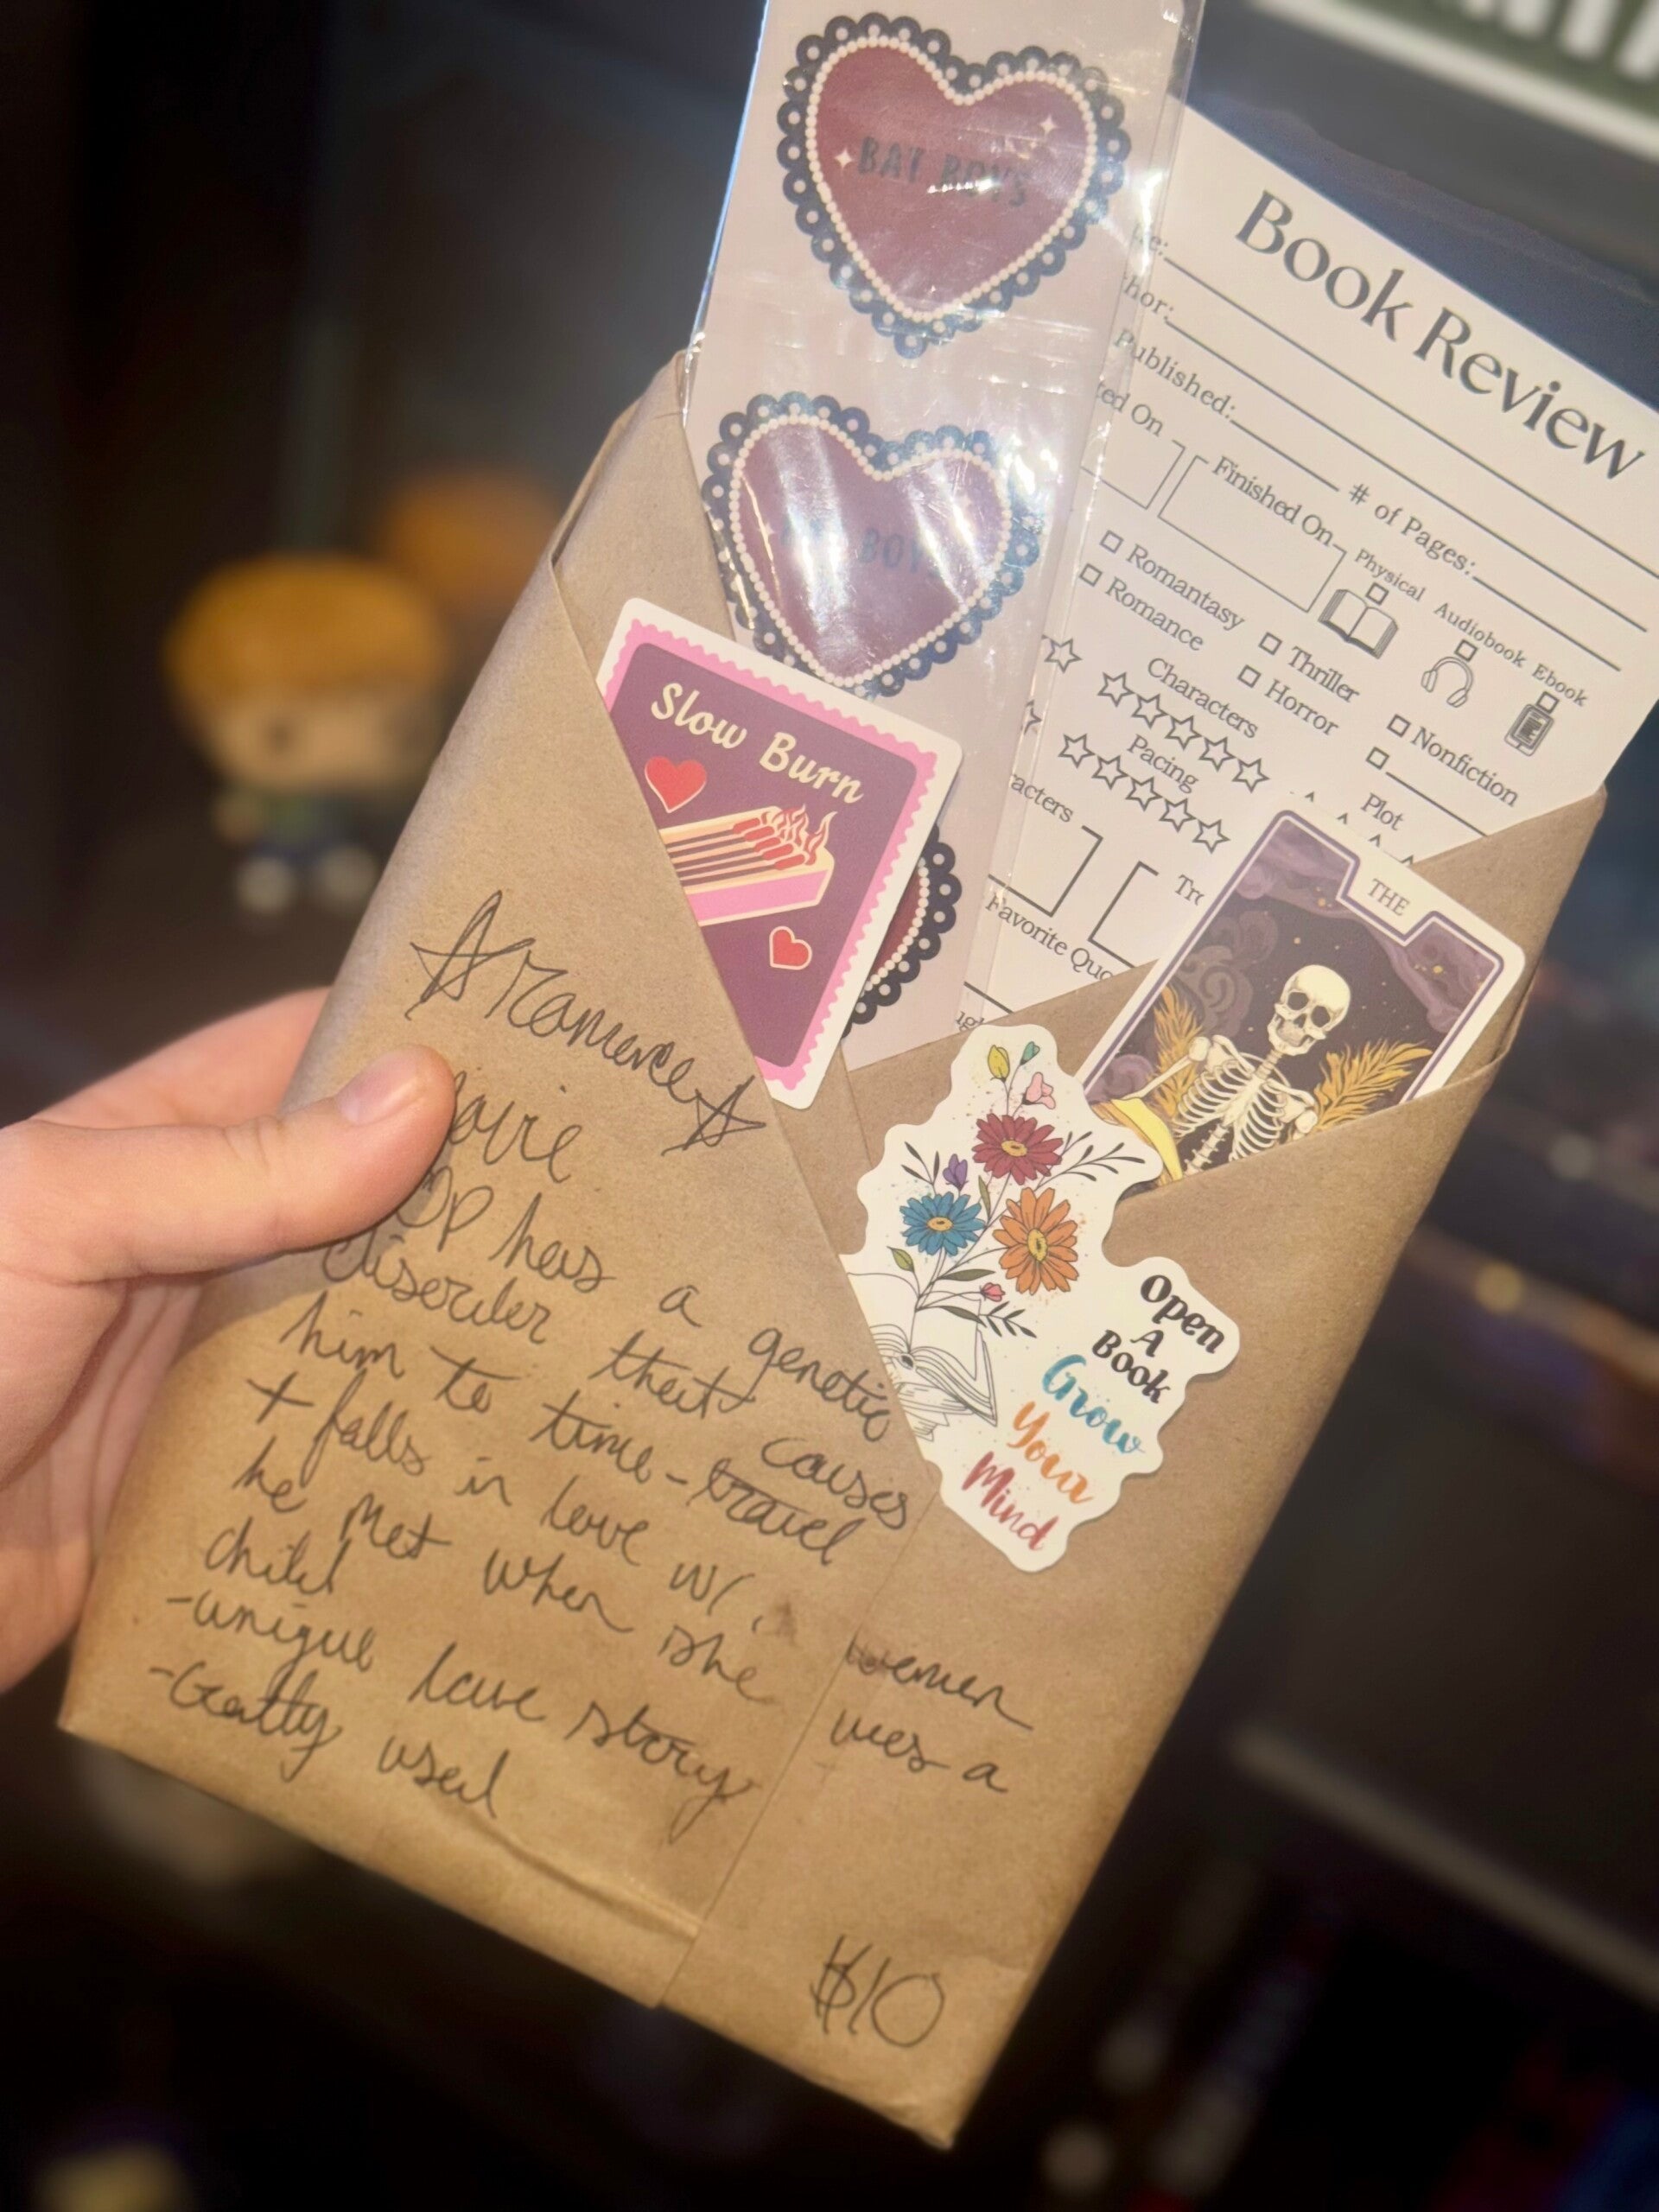 BAT BOYS
BOYS
Book Review
hor:
Published:
# of Pages:
ted On
Finished On
Physical
Audiobook
Ebook
Romantasy
Romance
Thriller
Horror
Nonfiction
Characters
Plot
Pacing
acters
Tro
Favorite Quo
Slow Burn
THE
Open
A
Book
Grow
Your
Mind
romance
has a genetic
disorder that causes
him to time-travel
+ falls in love w/ women
he met when she was a
child
-unique love story
-Gently used
$10